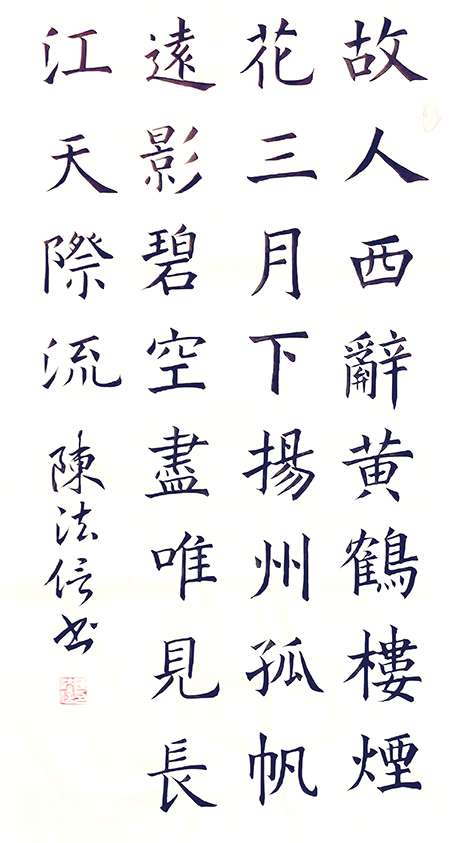 故人西辭黄鶴樓煙
花三月下揚州孤帆
遠影碧空盡唯見長
江天際流
陳法信书